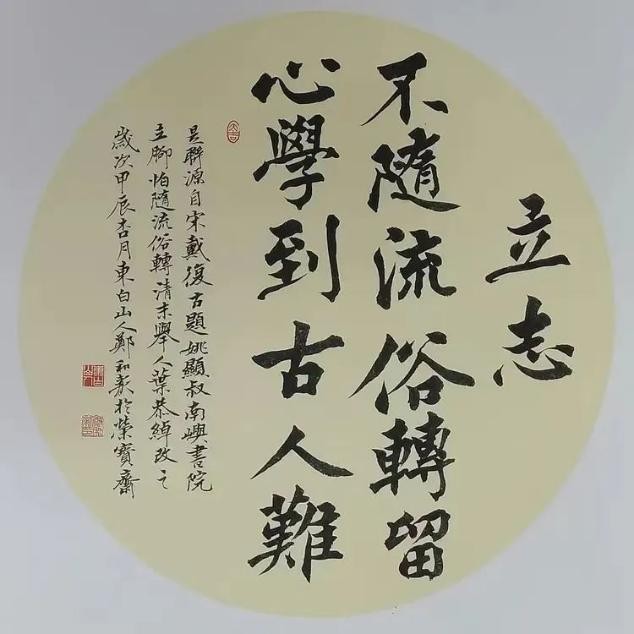 立志
不隨流俗轉留
心學到古人難
是聯源自宋戴復古題姚顯叔南嶼書院
立腳怕隨流俗轉清末舉人葉恭綽改之
歲次甲辰杏月東白山人鄭和義於榮寶齋